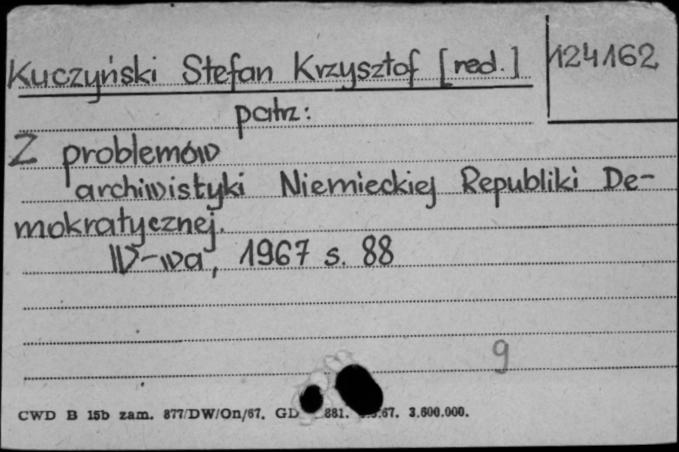 Kuczyński Stefan Krzysztof [red.]
124162
patrz:
Z problemów
archiwistyki Niemieckiej Republiki De-
mokratycznej.
W-wa, 1967 s. 88
9
CWD B 15b zam. 877/DW/On/67. GD 881. .67. 3.600.000.